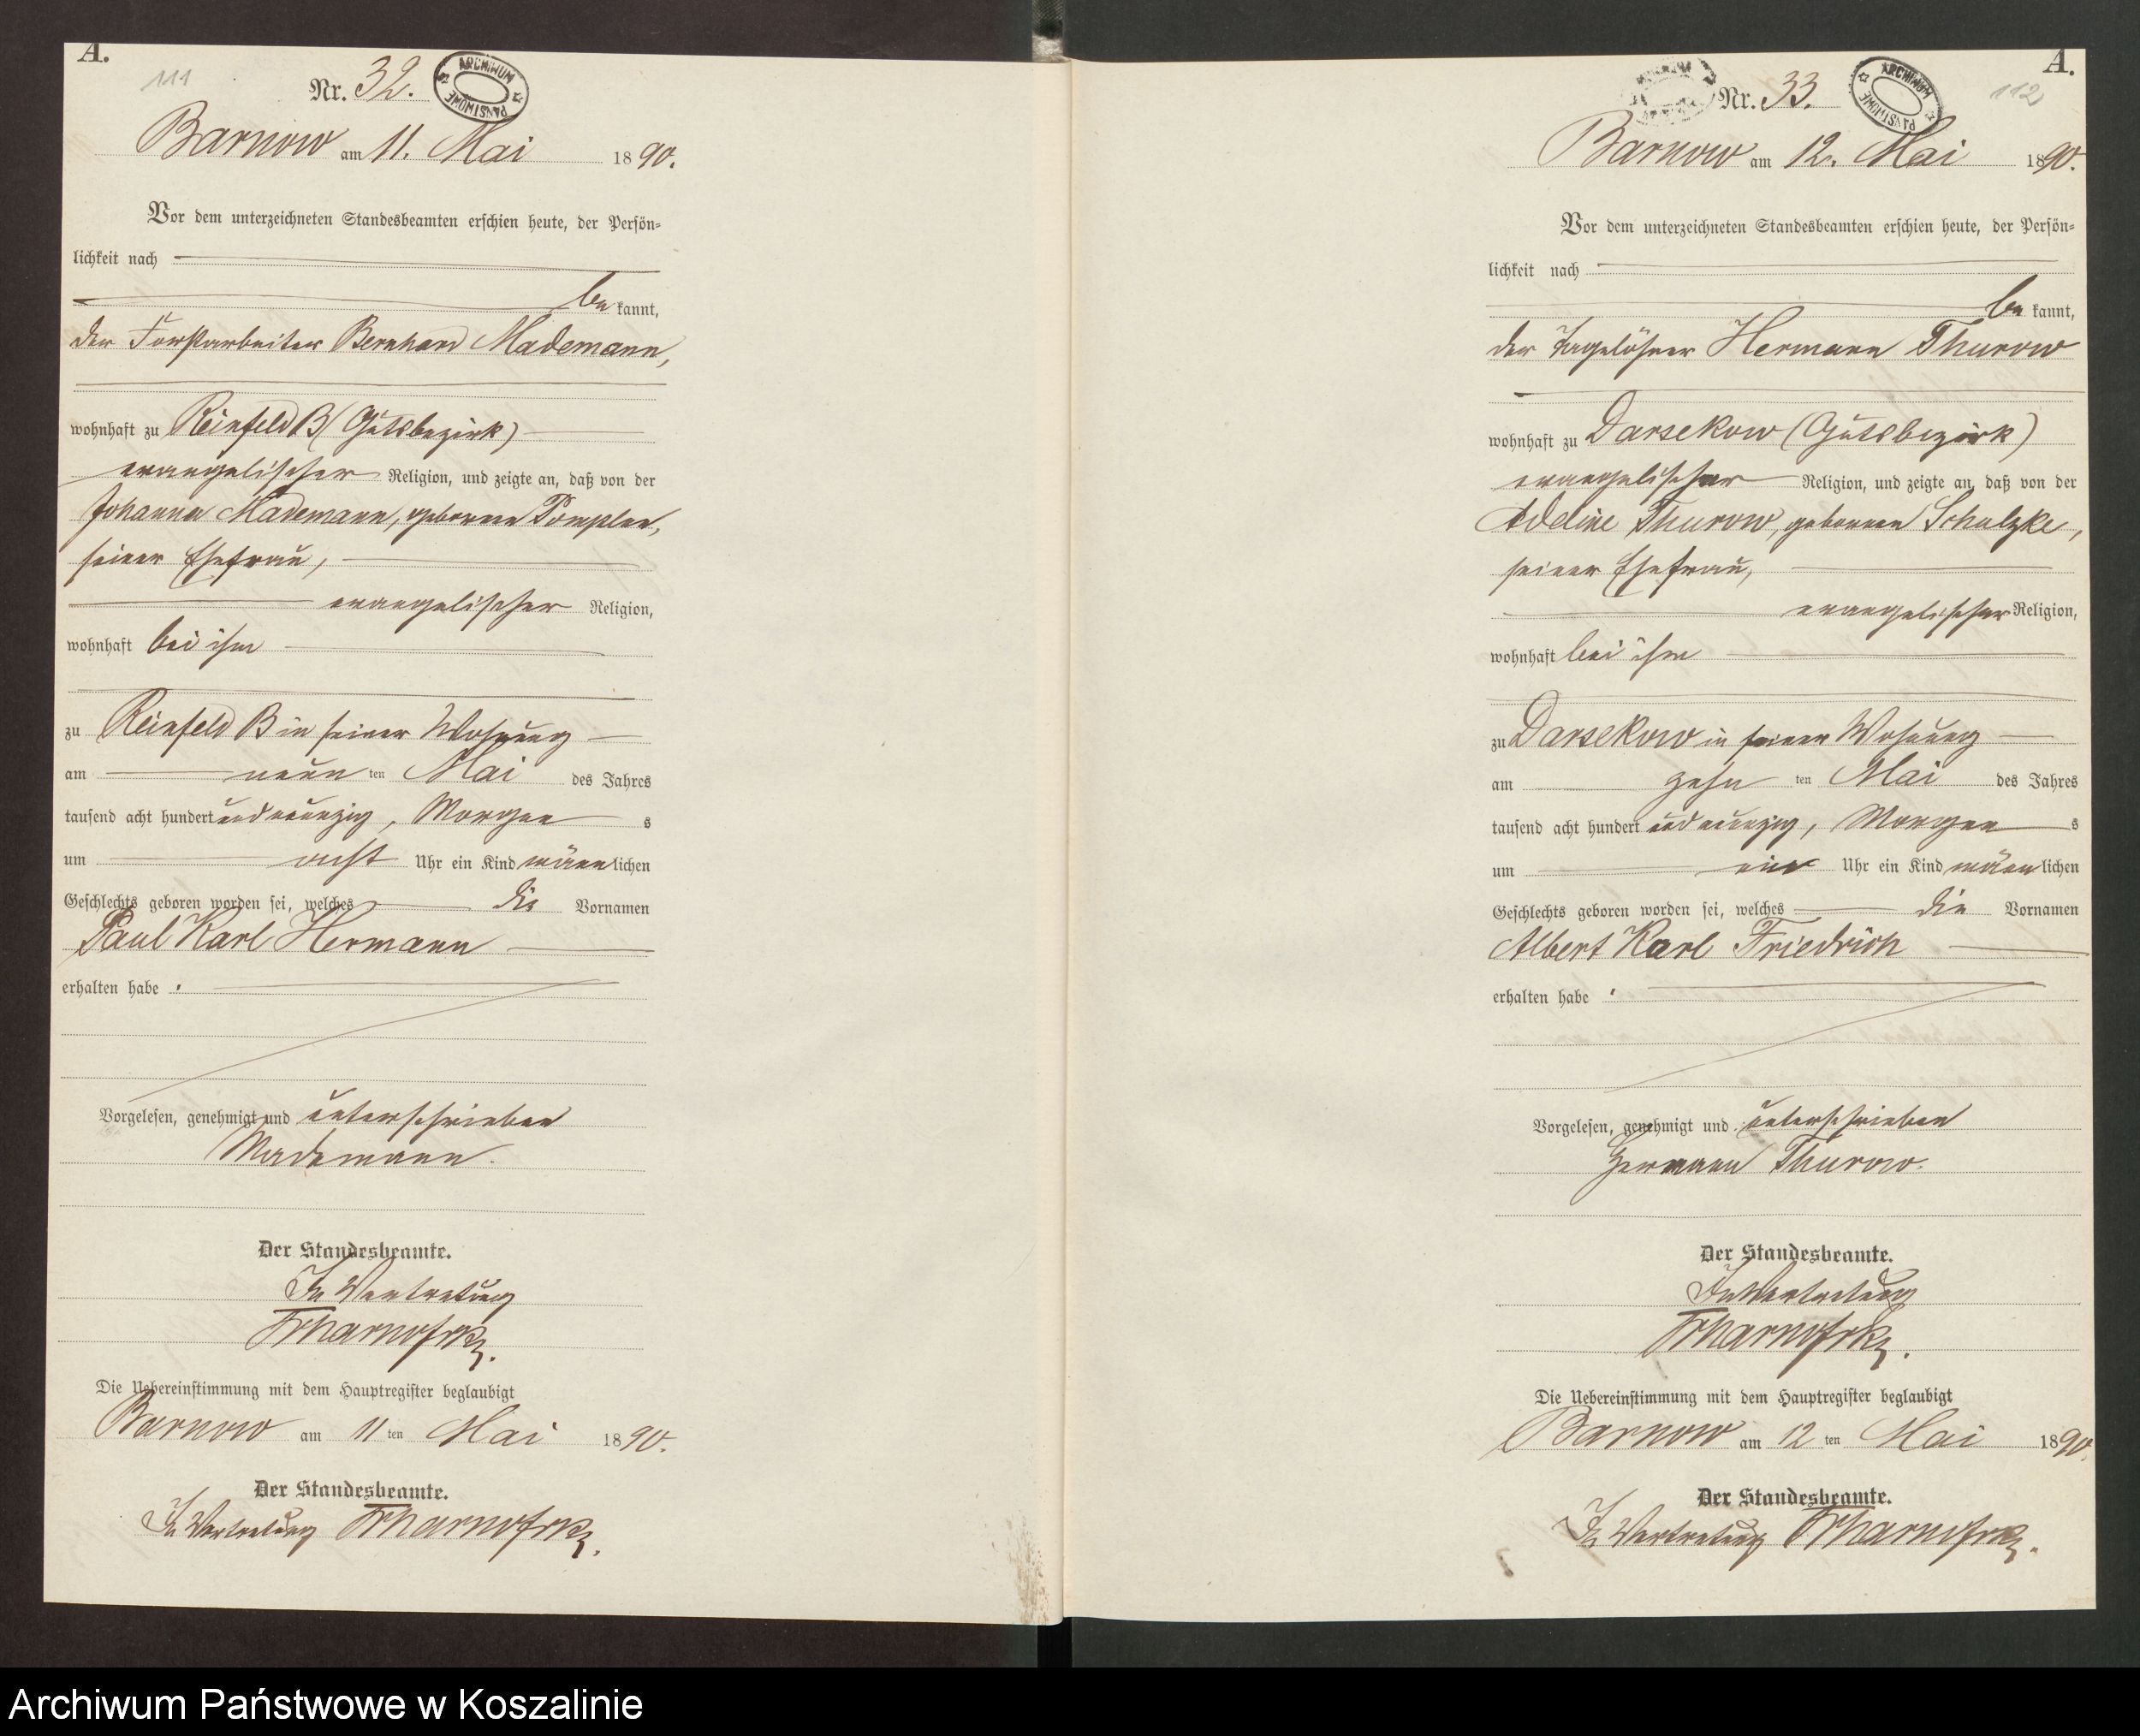 A.
111
Nr. 32.
ARCHIWUM PAŃSTWOWE
Barnow am 11. Mai 1890.
Vor dem unterzeichneten Standesbeamten erschien heute, der Persön-
lichkeit nach
be kannt,
der Forstarbeiter Bernhard Mademann,
wohnhaft zu Reinfeld B (Gutsbezirk)
evangelischer Religion, und zeigte an, daß von der
Johanna Mademann, geborenen Pomplun,
seiner Ehefrau,
evangelischer Religion,
wohnhaft bei ihm
zu Reinfeld B in seiner Wohnung
am neun ten Mai des Jahres
tausend acht hundert und neunzig, Morgen s
um acht Uhr ein Kind männlichen
Geschlechts geboren worden sei, welches die Vornamen
Paul Karl Hermann
erhalten habe .
Vorgelesen, genehmigt und unterschrieben
Mademann.
Der Standesbeamte.
In Vertretung
Die Uebereinstimmung mit dem Hauptregister beglaubigt
Barnow am 11 ten Mai 1890.
Der Standesbeamte.
In Vertretung
A.
112
Nr. 33.
ARCHIWUM PAŃSTWOWE
Barnow am 12. Mai 1890.
Vor dem unterzeichneten Standesbeamten erschien heute, der Persön-
lichkeit nach
be kannt,
der Tagelöhner Hermann Thurow
wohnhaft zu Darsekow (Gutsbezirk)
evangelischer Religion, und zeigte an, daß von der
Adeline Thurow, geborenen Schulzke,
seiner Ehefrau,
evangelischer Religion,
wohnhaft bei ihm
zu Darsekow in seiner Wohnung
am zehn ten Mai des Jahres
tausend acht hundert und neunzig, Morgen s
um ein Uhr ein Kind männlichen
Geschlechts geboren worden sei, welches die Vornamen
Albert Karl Friedrich
erhalten habe .
Vorgelesen, genehmigt und unterschrieben
Hermann Thurow.
Der Standesbeamte.
In Vertretung
Die Uebereinstimmung mit dem Hauptregister beglaubigt
Barnow am 12 ten Mai 1890.
Der Standesbeamte.
In Vertretung
Archiwum Państwowe w Koszalinie